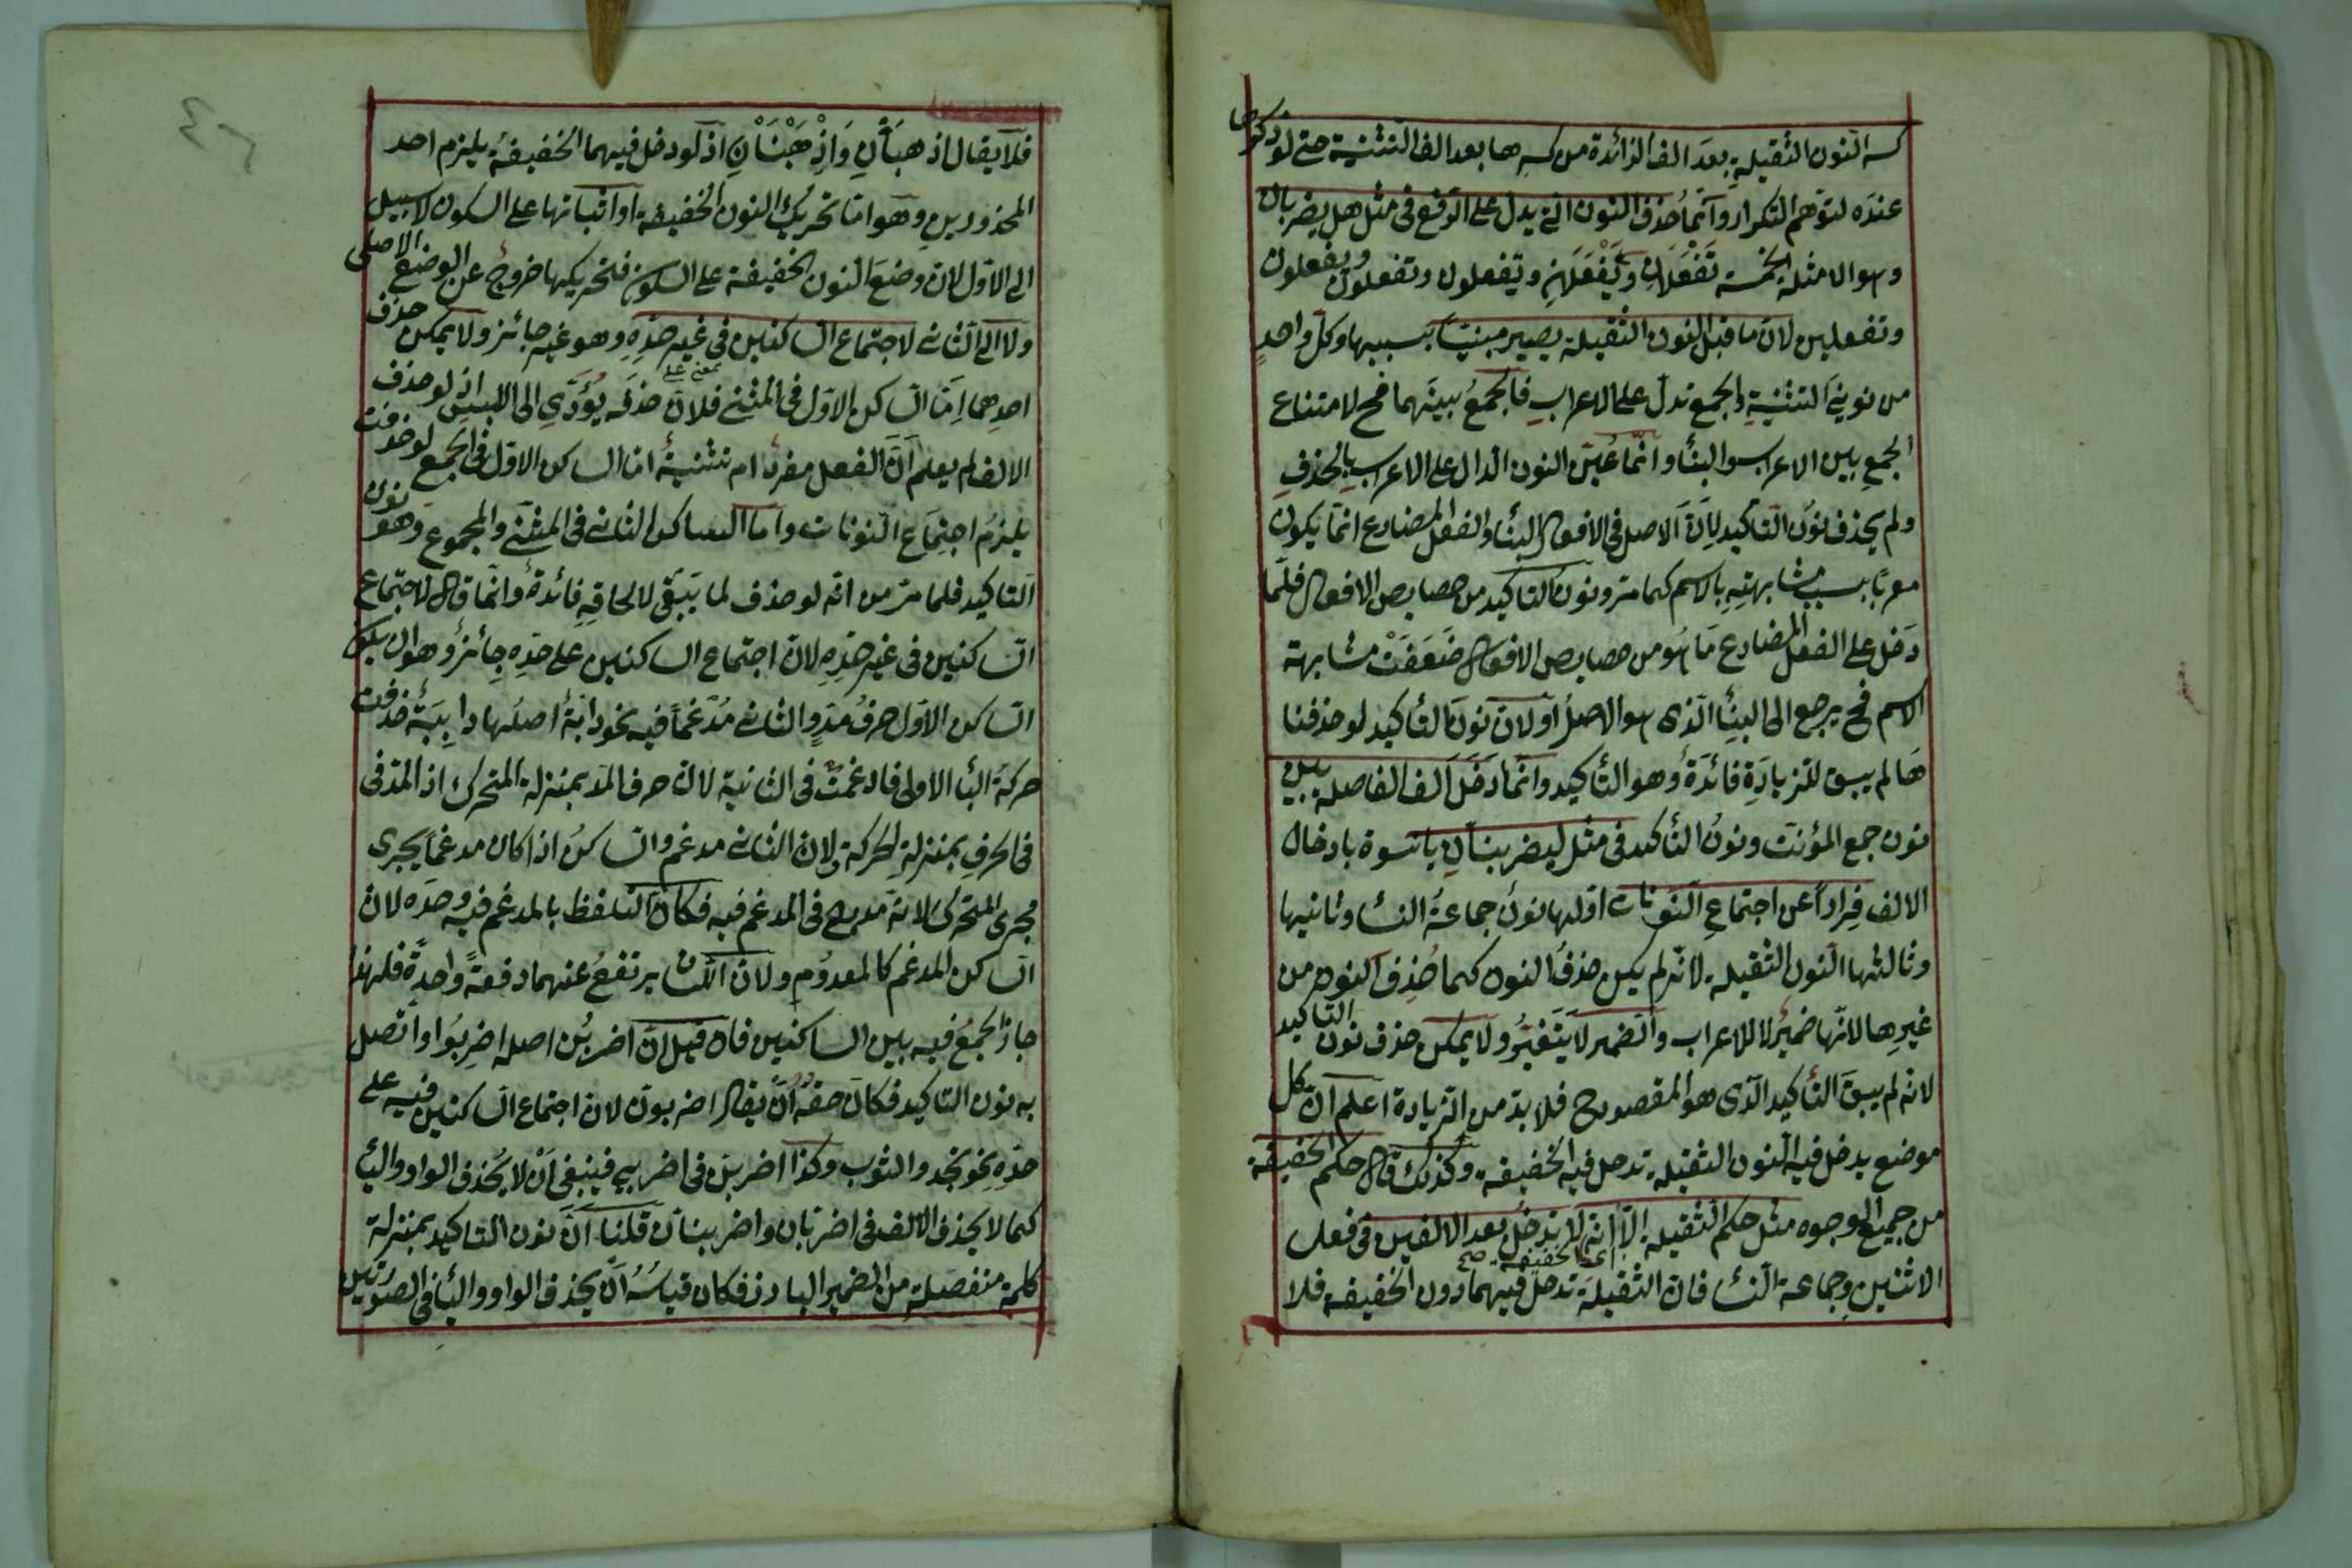 كسر النون الثقيلة بعد الف الزائدة من كسرها بعد الف التثنية حتى لو ذكرها
عنده لتوهم التكرار وانما حذف النون التى يدل على الرفع فى مثل هل يضربان
وهو الامثلة الخمسة تَفْعَلَانِ وَيَفْعَلَانِ ويفعلون وتفعلون
وتفعلين لان ما قبل النون الثقيلة يصير مبنيا بسببها وكل واحدٍ
من نونى التثنية والجمع تدل على الاعراب فالجمعُ بينهما فح لامتناع
الجمع بين الاعراب والبناء وانما عُيّن النون الدال على الاعراب بالحذف
ولم يحذف نونُ التأكيد لِاَنَّ الاصل فى الافعال البناء والفعل المضارع انما يكون
معربًا بسبب مشابهتِهِ بالاسم كما مر ونون التاكيد من خصايص الافعال فلما
دَخل على الفعل المضارع مَا هُو من خصايص الافعال ضَعَفَتْ مشابهة
الاسم فح يرجع الى البناء الذى هو الاصلُ اولان نونَ التأكيد لو حذفنا
هَا لم يبق للزيادَةِ فائدَةٌ وهو التأكيد وانما دَخَلَ الف الفاصلة بين
نون جمع المؤنث ونونُ التأكيد فى مثل ليضربنانِ يا نسوة بادخال
الالف فِراراً عن اجتماعِ النونات اولها نونُ جماعةُ النساء وثانيها
وثالثها النون الثقيلة لانه لم يكن حذفُ النون كما حُذِف النون من
غيرِها لانها ضميرٌ لا للاعراب والضمير لا يَتَغيّرُ ولا يمكن حذف نون التاكيد
لانه لم يبقَ التأكيد الذى هو المقصود ح فلا بد من الزيادة اعلم ان كل
موضع يدخل فيه النون الثقيلة تدخل فيه الخفيفة وكذلك قال حكم الخفيفة
من جميع الوجوه مثل حكم الثقيلة الّا انه لا يَدخُلُ بعد الالفين فى فعل
اى الخفيفة صح
الاثنين وجماعة النساء فان الثقيلة تدخل فيهما دون الخفيفة فلا
فلا يقال اذهبَأنِ وَاذْهَبْنَانِ اذ لو دخل فيهما الخفيفةُ يلزم احد
المحذورين وهو اما تحريك النون الخفيفة او اثباتها على السكون لا سبيل
الى الاول لان وضعَ النون الخفيفة على السكون فتحريكها خروجٌ عن الوضع الاصلى
ولا الى الثانى لاجتماع الساكنين فى غير حَدِهِ وهو غير جائز ولا يمكن حذف
احدِهما اِمّا الساكن الاول فى المثنى فلان حذفَه يُؤدَّي الى اللبس اذ لو حذف
الالف لم يعلم اَنَّ الفعل مفردٌ ام تثنيةٌ اما الساكن الاول فى الجمع لو حذفت
يلزمُ اجتِمَاع النونات واما الساكن الثانى فى المثنى والمجموع وهو نون
التاكيد فلما مرّ من انه لو حذف لما يَبَقى لالحاقِهِ فائدةٌ وانما قال لاجتماع
الساكنين فى غير حَدِهِ لان اجتماع الساكنين على حَدِه جِائزٌ وهو ان يكون
الساكن الاول حرفُ مَدٍّ والثانى مُدّغماً فيه نحو دابّة اصلُها دابِبَةٌ حذفت
حركة الباء الاولى فادغمت فى الثانية لان حرف المد بمنزلة المتحرك اذ المد فى
فى الحرفِ بمنزلةِ الحركة ولان الثانى مدغم والساكنُ اذا كان مدغماً يجرى
مُجرى المتحرك لانه مدرج فى المدغم فيه فكان التلفظ بالمدغم فيه وحدَه لان
الساكن المدغم كالمعدوُم ولان اللسان يرتفعُ عنهما دفعةً واحدةً فلهذا
جازَ الجمعُ فيه بين الساكنين فان قيل ان اضربُن اصله اضرِبُوا واتصل
به نون التاكيد فكان حقهُ اَنّ يقال اضربونّ لان اجتماع الساكنين فيه على
حَدِهِ نحو تمودّ الثوب وكذا اضربنّ فى اضربى فينبغى اَنْ لا يُحذف الواو والياء
كما لا يحذف الالف فى اضربان واضربنان قلنا اَنَّ نون التاكيد بمنزلة
كلمة منفصَلة من الضمير البارز فكان قياسُهُ اَن يحذف الواو والياء فى الصورتين